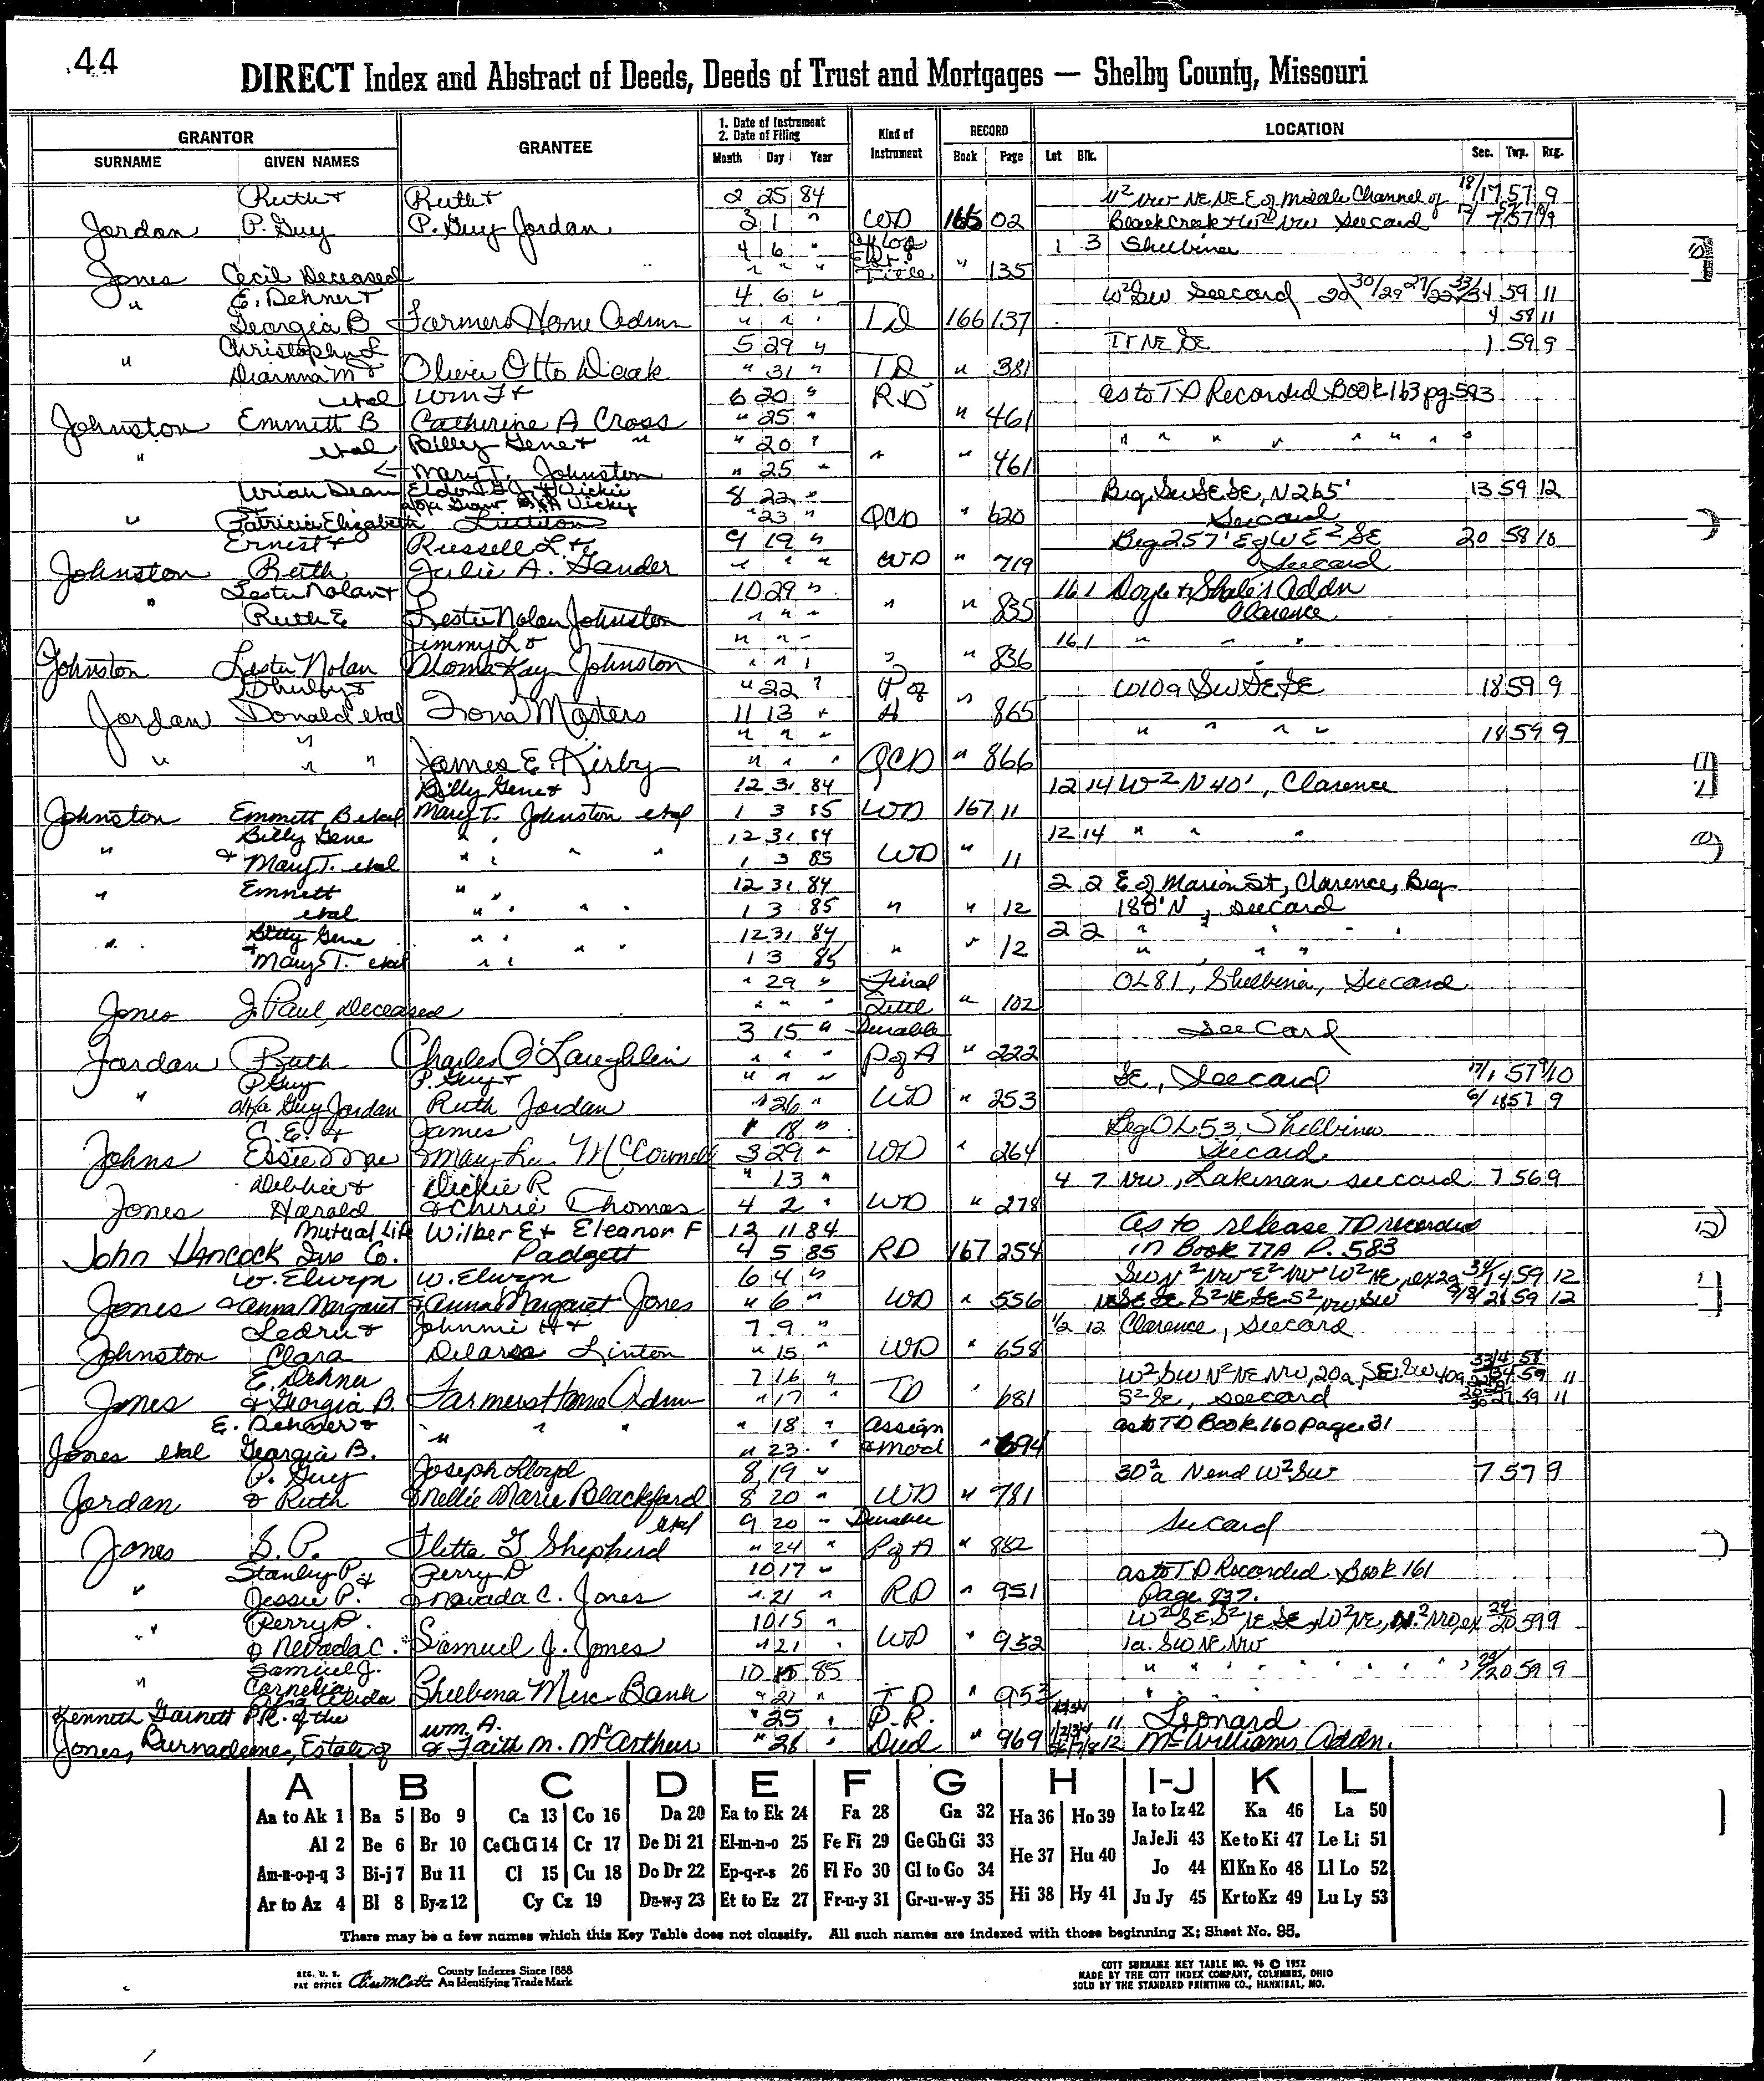 44
DIRECT Index and Abstract of Deeds, Deeds of Trust and Mortgages — Shelby County, Missouri
GRANTOR GRANTEE 1. Date of Instrument 2. Date of Filing Kind of Instrument RECORD LOCATION
SURNAME GIVEN NAMES Month Day Year Book Page Lot Blk. Sec. Twp. Rrg.
Ruth & Ruth & 2 25 84 N² NW NE, NE E of Middle Channel of 18/17 57 9
Jordan P. Guy P. Guy Jordan 3 1 " WD 165 02 Black Creek & W² NW Seecard
4 6 " 1 3 Shelbina
Jones Cecil Deceased " " " Title " 135
" E. Dehner & 4 6 " W² SW Seecard
Georgia B Farmers Home Admn " " " TD 166 137 4 58 11
Christopher L 5 29 " IT NE SE 1 59 9
" Dianna M & Oliver Otto Diak " 31 " TD " 381
etal Wm F & 6 20 " RD as to TD Recorded Book 163 pg 593
Johnston Emmett B Catherine A Cross " 25 " " 461
" etal Billy Gene & " " 20 " " " " " " " " "
Mary T. Johnston " 25 " " " 461
Urian Dean 8 22 " Beg SW SE SE, N 265' 13 59 12
" Patricia Elizabeth " 23 " QCD " 620 Seecard
Ernest & Russell L. & 9 19 " Beg 257' E of W E² SE 20 58 10
Johnston Ruth Julie A. Gander " " " WD " 719 Seecard
" Lester Nolan & 10 29 " 16 1 Doyle & Shale's Addn
Ruth E Lester Nolan Johnston " " " " " 835 Clarence
Jimmy L & " " " 16 1 " " "
Johnston Lester Nolan Aloma Kay Johnston " " " " " 836
Shirley & " 22 " P of W10a SW SE SE 18 59 9
Jordan Donald etal Iona Masters 11 13 " A " 865
" " " " " " " " 18 59 9
" " " James E. Kirby " " " QCD " 866
Billy Gene & 12 31 84 12 14 W² N 40', Clarence
Johnston Emmett B etal Mary T. Johnston etal 1 3 85 WD 167 11
Billy Gene " " 12 31 84 12 14 " " "
" & Mary T. etal " " " " 1 3 85 WD " 11
" Emmett " " 12 31 84 2 2 E of Marion St, Clarence, Beg
etal " " " " 1 3 85 " " 12 180' N, seecard
" Billy Gene " " " " 12 31 84 2 2 " " " " "
& Mary T. etal " " 1 3 85 " " 12 " " "
" 29 " Final OL 81, Shelbina, Seecard
Jones J. Paul, Deceased " " " Settl " 102
3 15 " Durable See Card
Jordan Ruth Charles O'Laughlin " " " P of A " 222
P. Guy P. Guy & " " " SE, Seecard
" aka Guy Jordan Ruth Jordan " 26 " WD " 253
C. E. & James " 18 " Beg OL 53, Shelbina
Johns Essie Mae & Mary Lee McConnell 3 29 " WD " 264 Seecard
Debbie & Dickie R " 13 " 4 7 NW, Lakenan seecard 7 56 9
Jones Harold & Cherie Thomas 4 2 " WD " 278
Mutual Life Wilber E & Eleanor F 12 11 84 as to release TD recorded
John Hancock Ins Co. Padgett 4 5 85 RD 167 254 in Book 77A P. 583
W. Elwyn W. Elwyn 6 4 " SW N² NW E² NW W² NE, ex 2a
Jones & Anna Margaret & Anna Margaret Jones " 6 " WD " 556 NE SE SE S² NE SE S² NW SW
Ledru & Johnnie H & 7 9 " 1/2 12 Clarence, Seecard
Johnston Clara Delores Linton " 15 " WD " 658
E. Dehner 7 16 " W² SW N² NE NW, 20a, SE SW 40a
Jones & Georgia B. Farmers Home Admn " 17 " TD " 681 S² SE, seecard
E. Dehner & " " " " 18 " Assign as to TD Book 160 page 31
Jones etal Georgia B. " 23 " & Mod " 694
P. Guy Joseph Lloyd 8 19 " 30²a N end W² SW 7 57 9
Jordan & Ruth & Nellie Marie Blackford 8 20 " WD " 781
etal 9 20 " Durable Seecard
Jones S. P. Fletta G Shepherd " 24 " P of A " 882
Stanley P & Perry D 10 17 " as to TD Recorded Book 161
" Jessie P. & Nevada C. Jones " 21 " RD " 951 Page 937.
" Perry D. 10 15 " W² SE S² NE SE, W² NE, N² NW, ex 29/20 59 9
& Nevada C. Samuel J. Jones " 21 " WD " 952 1a. SW NE NW
Samuel J. 10 15 85 " " " " " " " 29/20 59 9
" Cornelia Shelbina Merc Bank " 21 " TD " 953
Kenneth Garnett P.R. of the Wm. A. " 25 " P.R. 11 Leonard
Jones, Burnadeane, Estate of & Faith M. McArthur " 28 " Deed " 969 12 McWilliams Addn.
A B C D E F G H I-J K L
Aa to Ak 1 Ba 5 Bo 9 Ca 13 Co 16 Da 20 Ea to Ek 24 Fa 28 Ga 32 Ha 36 Ho 39 Ia to Iz 42 Ka 46 La 50
Al 2 Be 6 Br 10 Ce Ch Ci 14 Cr 17 De Di 21 El-m-n-o 25 Fe Fi 29 Ge Gh Gi 33 He 37 Hu 40 Ja Je Ji 43 Ke to Ki 47 Le Li 51
Am-n-o-p-q 3 Bi-j 7 Bu 11 Cl 15 Cu 18 Do Dr 22 Ep-q-r-s 26 Fl Fo 30 Gl to Go 34 Jo 44 Kl Kn Ko 48 Ll Lo 52
Ar to Az 4 Bl 8 By-z 12 Cy Cz 19 Du-w-y 23 Et to Ez 27 Fr-u-y 31 Gr-u-w-y 35 Hi 38 Hy 41 Ju Jy 45 Kr to Kz 49 Lu Ly 53
There may be a few names which this Key Table does not classify. All such names are indexed with those beginning X; Sheet No. 95.
REG. U. S. PAT OFFICE County Indexes Since 1888 An Identifying Trade Mark
COTT SURNAME KEY TABLE NO. 96 © 1952
MADE BY THE COTT INDEX COMPANY, COLUMBUS, OHIO
SOLD BY THE STANDARD PRINTING CO., HANNIBAL, MO.